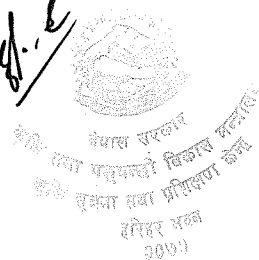 नेपाल सरकार
कृषि तथा पशुपन्छी विकास मन्त्रालय
कृषि सूचना तथा प्रशिक्षण केन्द्र
हरिहर भवन